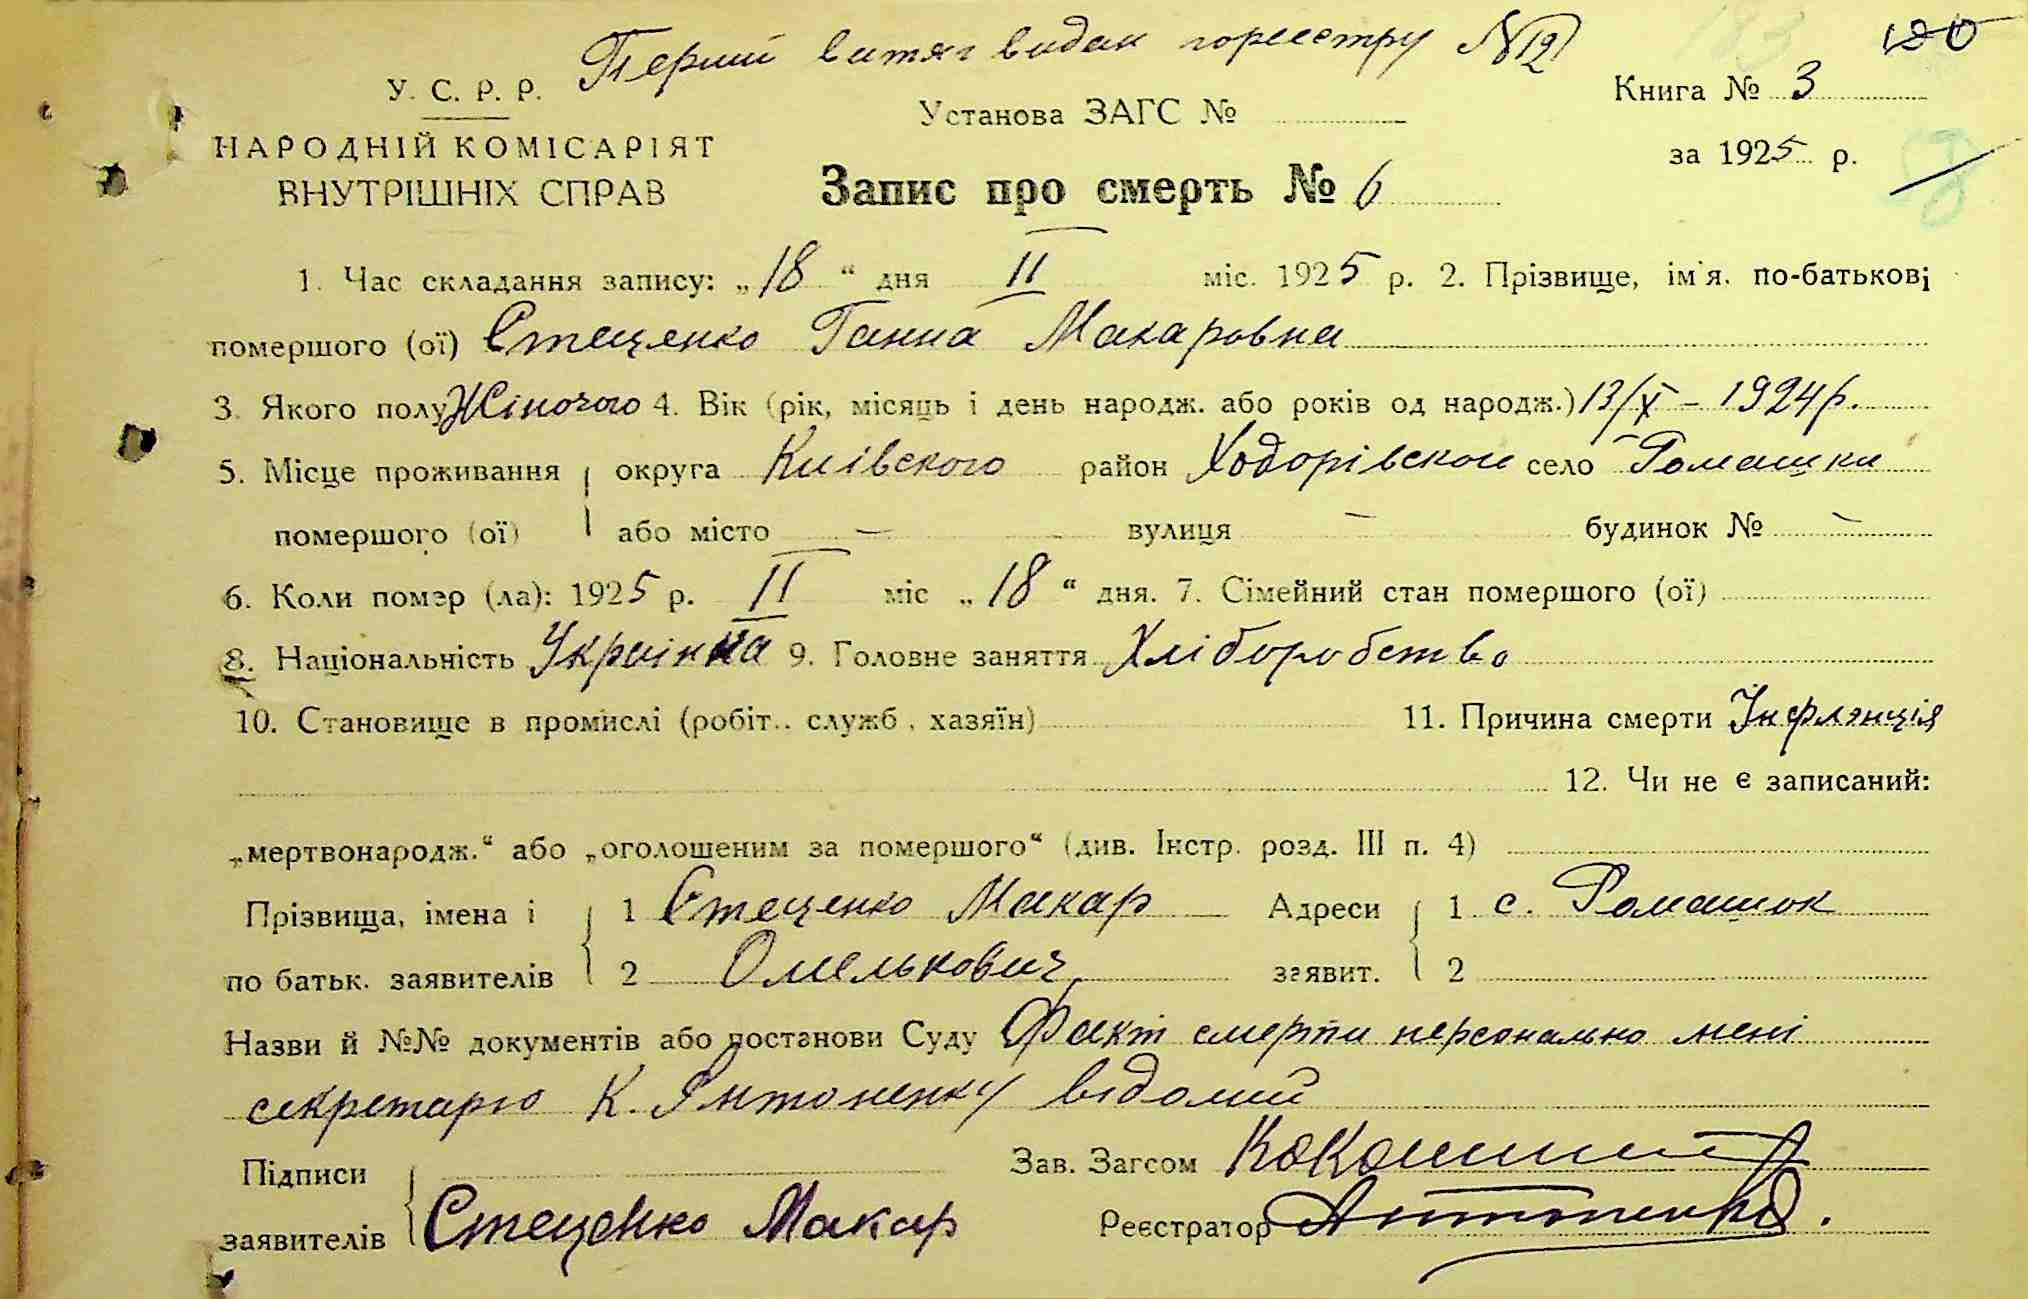 Перший витяг видан по реєстру №
У. С. Р. Р.
НАРОДНІЙ КОМІСАРІЯТ
ВНУТРІШНІХ СПРАВ
Установа ЗАГС №
Книга № 3
за 1925 р.
Запис про смерть № 6
1. Час складання запису: „18“ дня II міс. 1925 р. 2. Прізвище, ім'я, по-батькові
помершого (ої) Стеценко Ганна Макаровна
3. Якого полу Жіночого 4. Вік (рік, місяць і день народж. або років од народж.) 13/X – 1924 р.
5. Місце проживання округа Київского район Ходорівском село Ромашки
помершого (ої) або місто — вулиця — будинок № —
6. Коли помер (ла): 1925 р. II міс „18“ дня. 7. Сімейний стан помершого (ої)
8. Національність Українка 9. Головне заняття Хліборобство
10. Становище в промислі (робіт.. служб, хазяїн) 11. Причина смерти Інфлэнція
12. Чи не є записаний:
„мертвонародж.“ або „оголошеним за помершого“ (див. Інстр. розд. III п. 4)
Прізвища, імена і 1 Стеценко Макар Адреси 1 с. Ромашок
по батьк. заявителів 2 Омелькович заявит. 2
Назви й №№ документів або постанови Суду Факт смерти персонально мені
секретарю К. Антоненку відомий
Підписи Зав. Загсом
заявителів Стеценко Макар Реєстратор Антоненко.